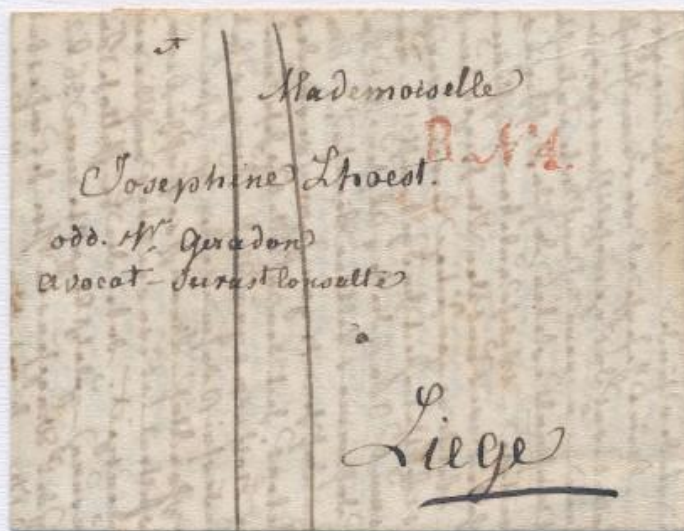 et
Mademoiselle
B. N°4.
Josephine Lhoest.
odd. Mr Geradon
avocat-Jurastconsalte
à
Liege